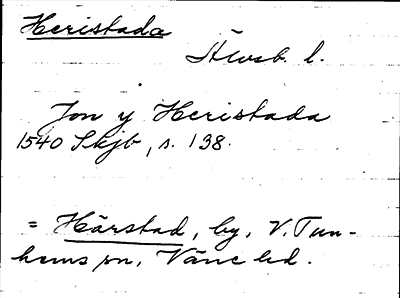 Heristada
Älvsb. l.
Jon y Heristada
1540 Skjb, s. 138.
= Härstad, by, V. Tun-
hems sn, Väne hd.